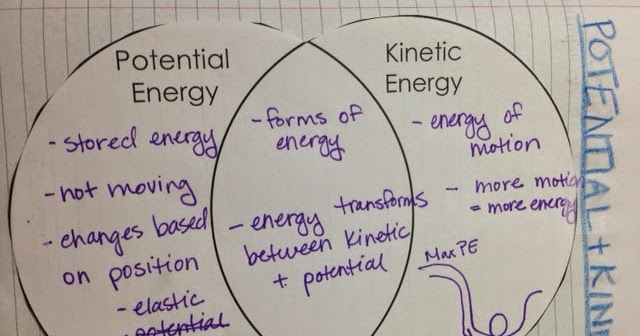 Potential
Energy
- stored energy
- not moving
- changes based
on position
- elastic
potential
- forms of
energy
- energy transforms
between kinetic
+ potential
Kinetic
Energy
- energy of
motion
- more motion
= more energy
Max PE
POTENTIAL + KIN